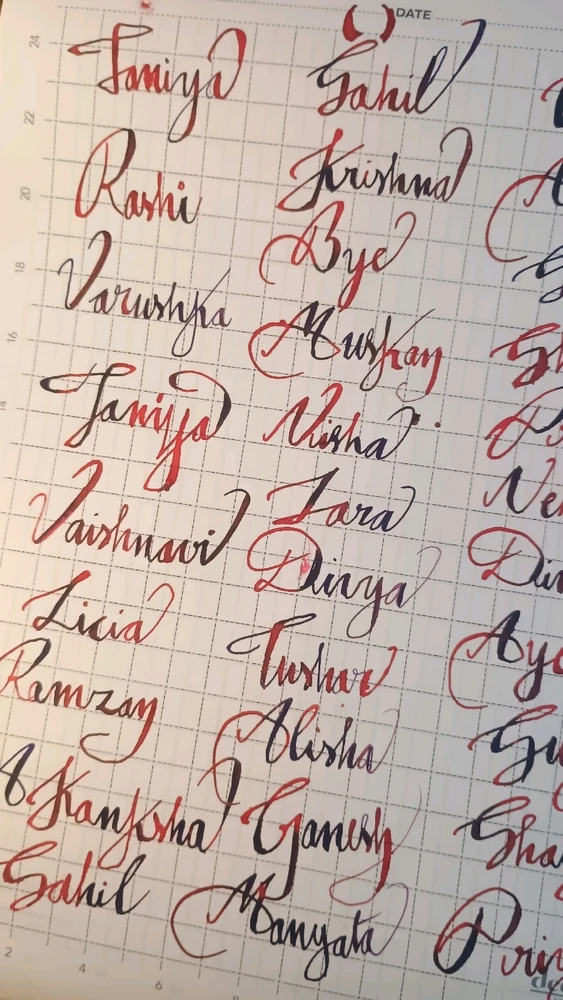 DATE
24
Taniya Sahil
22
Rashi Krishna
20
Bye
18
Varushka
16
Muskan
Taniya Nisha
Vaishnavi Zara
Divya
Licia
Tushar
Ramzan
Alisha
Akanksha Ganesh
Sahil Manyata
2 4 6